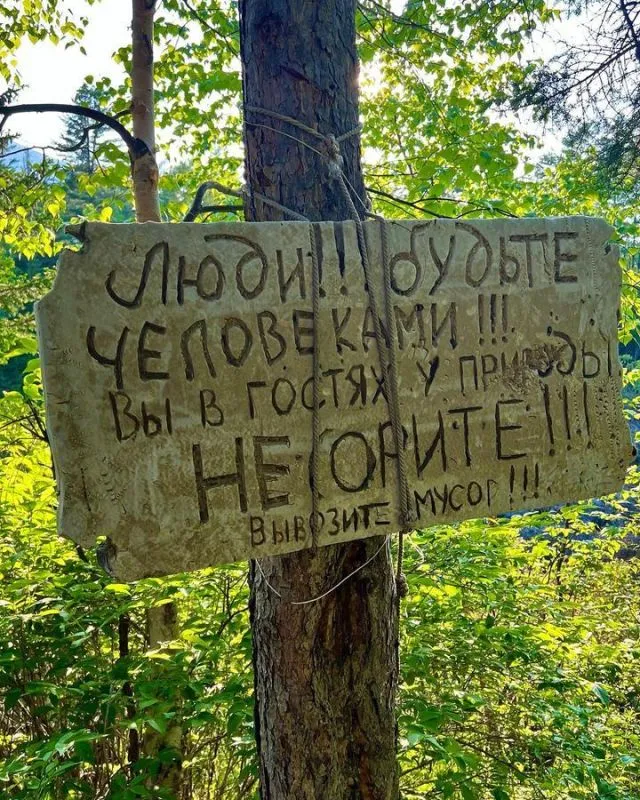 Люди!!! будьте
ЧЕЛОВЕКАМИ!!!
Вы в гостях у природы
НЕ СОРИТЕ!!!
Вывозите мусор!!!